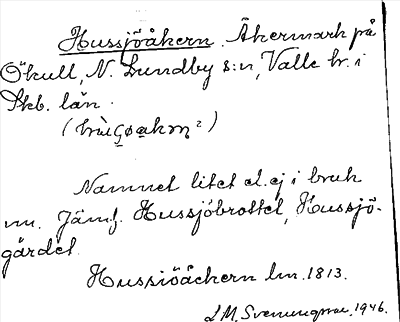 Hussjöåkern. Åkermark på
Ökull, N. Lundby s:n, Valle hr. i
Skb. län.
Namnet litet el. ej i bruk
nu. Jämf. Hussjöbrottet, Hussjö-
gärdet.
Hussiöåckern lm. 1813.
1946.